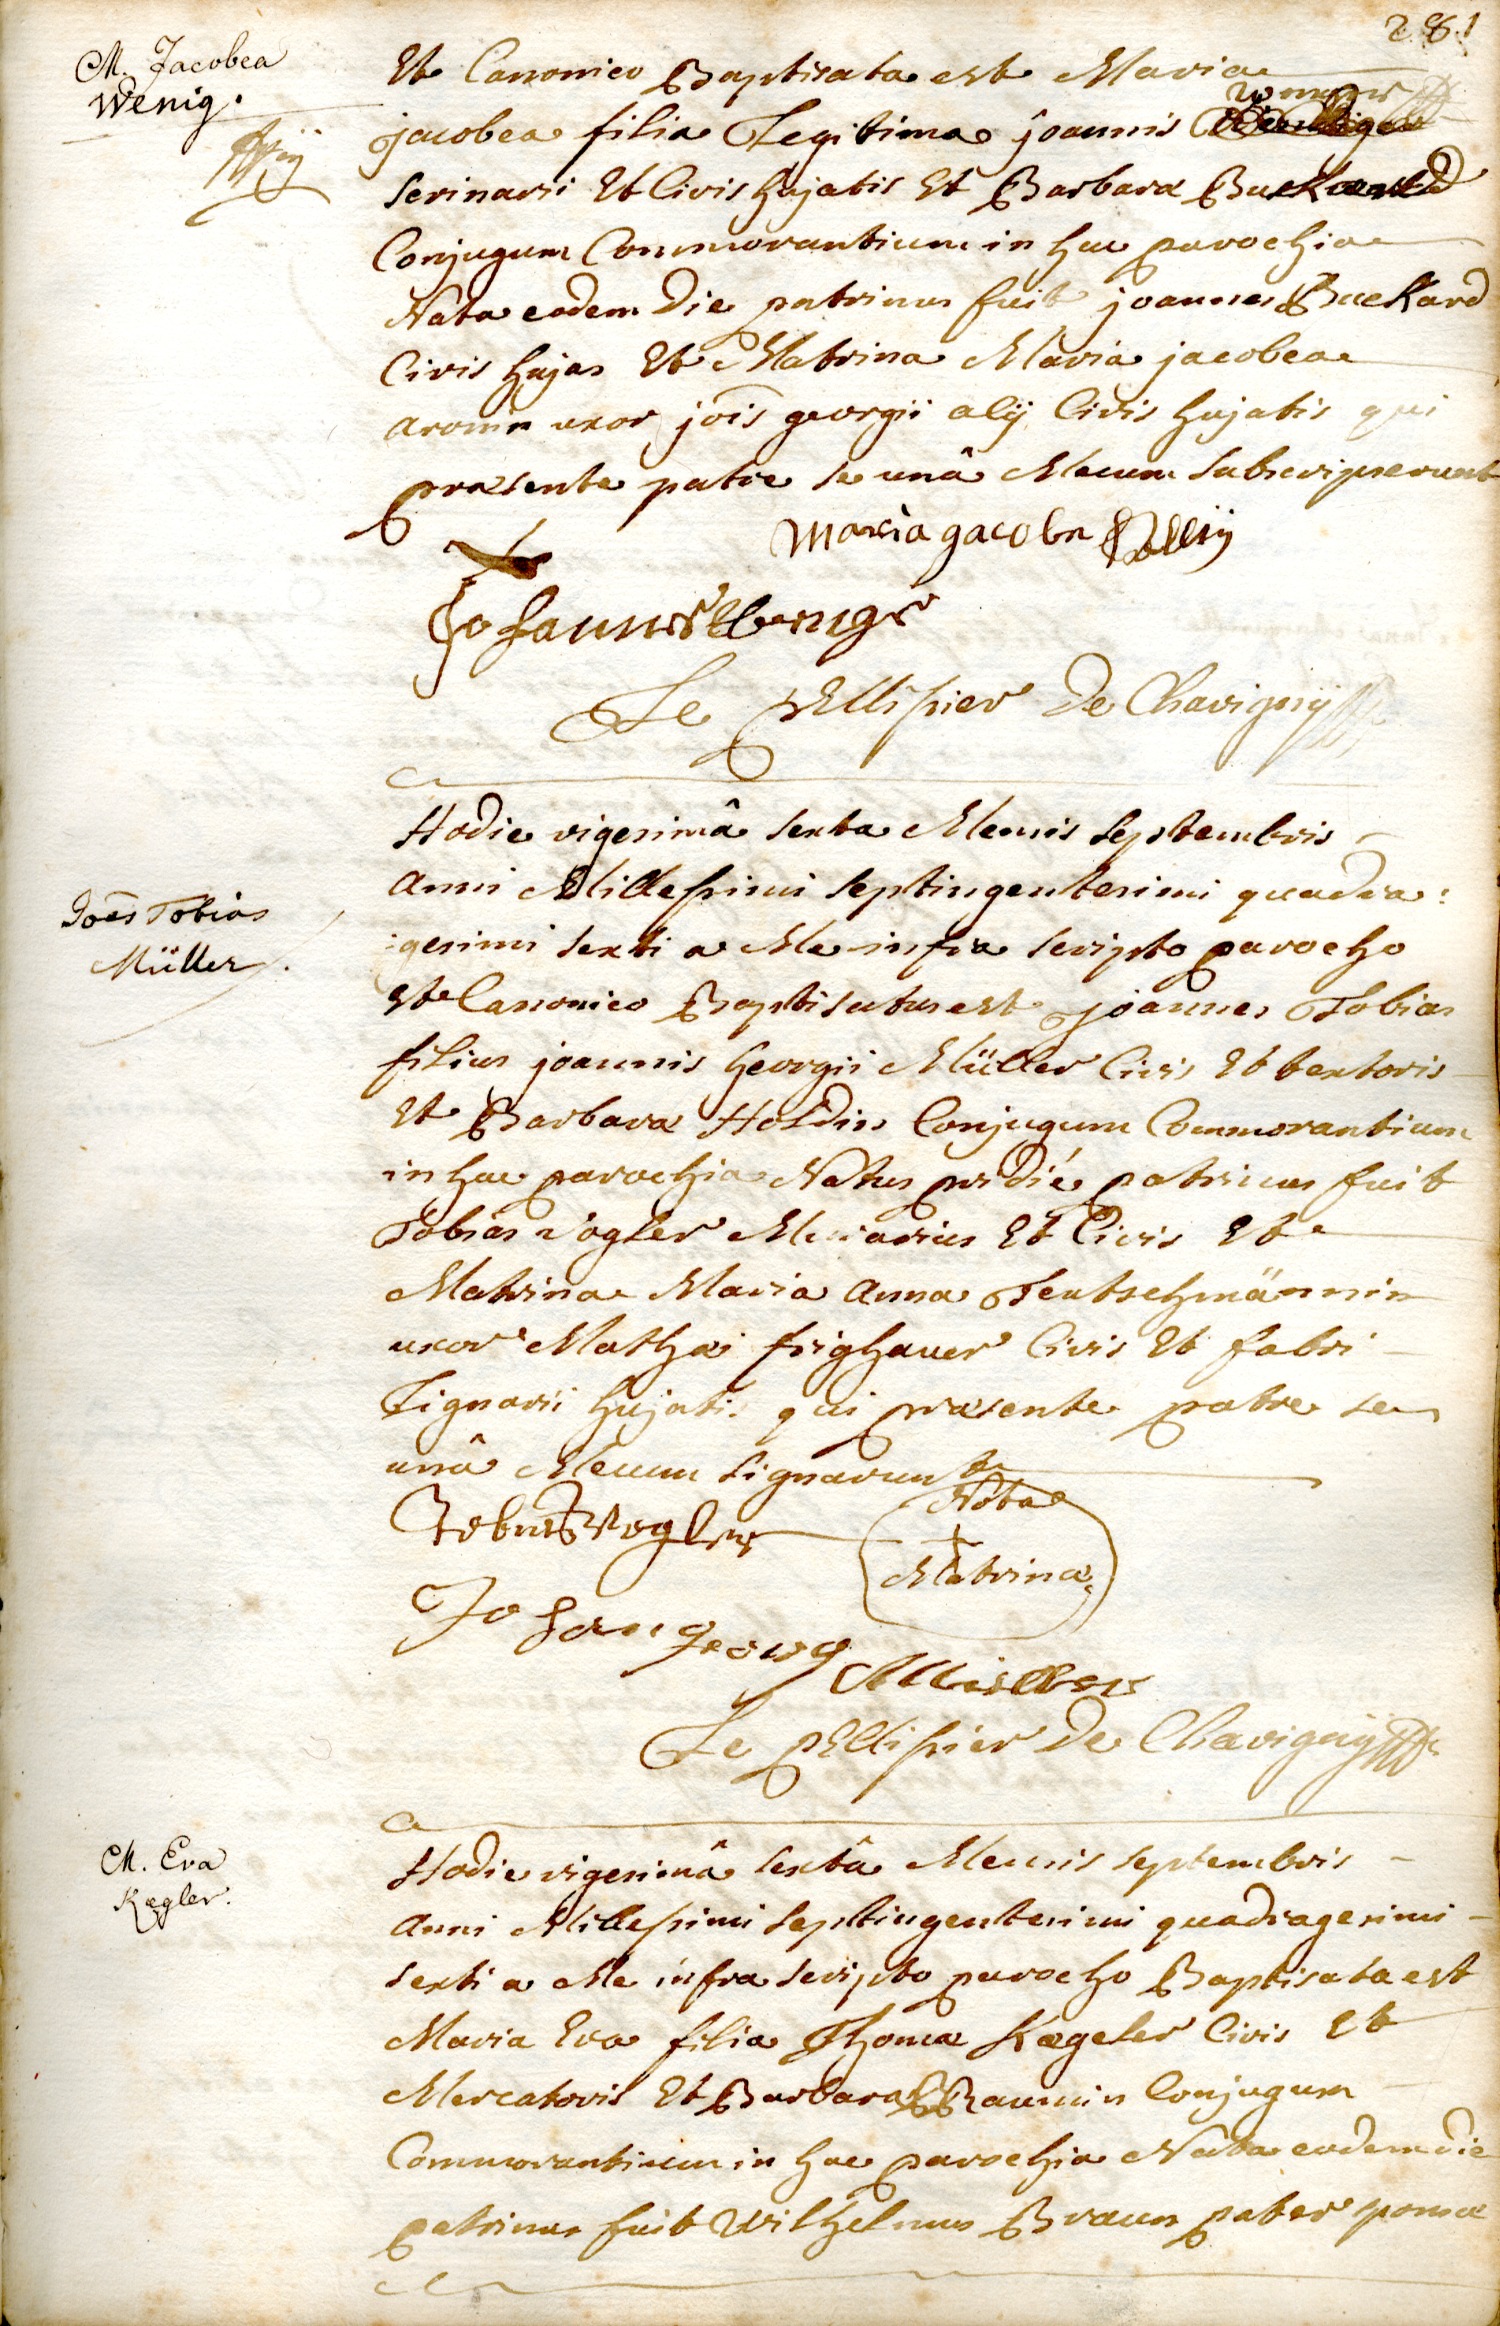 281
M. Jacobea
Wenig.
Et Canonico Baptisata est Maria
jacobea filia Legitima joannis
scrinarii Et Civis hujatis Et Barbara
Conjugum Commorantium in hac parochia
Nata eodem Die patrinus fuit joannes Buckard
Civis hujas Et Matrina Maria jacobea
uxor jois georgii Civis hujatis qui
præsente patre se unâ Mecum Subscripserunt
Maria Jacobe
Johannes Wenger
Le pEllissier De Chavigny
Hodie vigesimâ sexta Mensis Septembris
Joes Tobias
Müller.
Anni Millessimi Septingentesimi quadra:
:gesimi sexti a Me infra scripto parocho
Et Canonico Baptisatus est joannes Tobias
filius joannis Georgii Müller Civis Et textoris
Et Barbara Holdin Conjugum Commorantium
in hac parochia Natus pridié patrinus fuit
Tobias Vogler Murarius Et Civis Et
Matrina Maria Anna Teutschmännin
uxor Mathæi frighauer Civis Et fabri
Lignarii hujatis qui præsente patre se
unâ Mecum Signarunt
Tobias Vogler
Nota
Matrinæ
Johan Georg Miller
Le pEllissier De Chavigny
M. Eva
Kegler.
Hodie vigesimâ sextâ Mensis Septembris
Anni Millessimi Septingentesimi quadragesimi
sexti a Me infra scripto parocho Baptisata est
Maria Eva filia Thomæ Kægeler Civis Et
Mercatoris Et Barbara Braunin Conjugum
Commorantium in hac parochia Nata eodem die
patrinus fuit Wilhelmus Braun pater